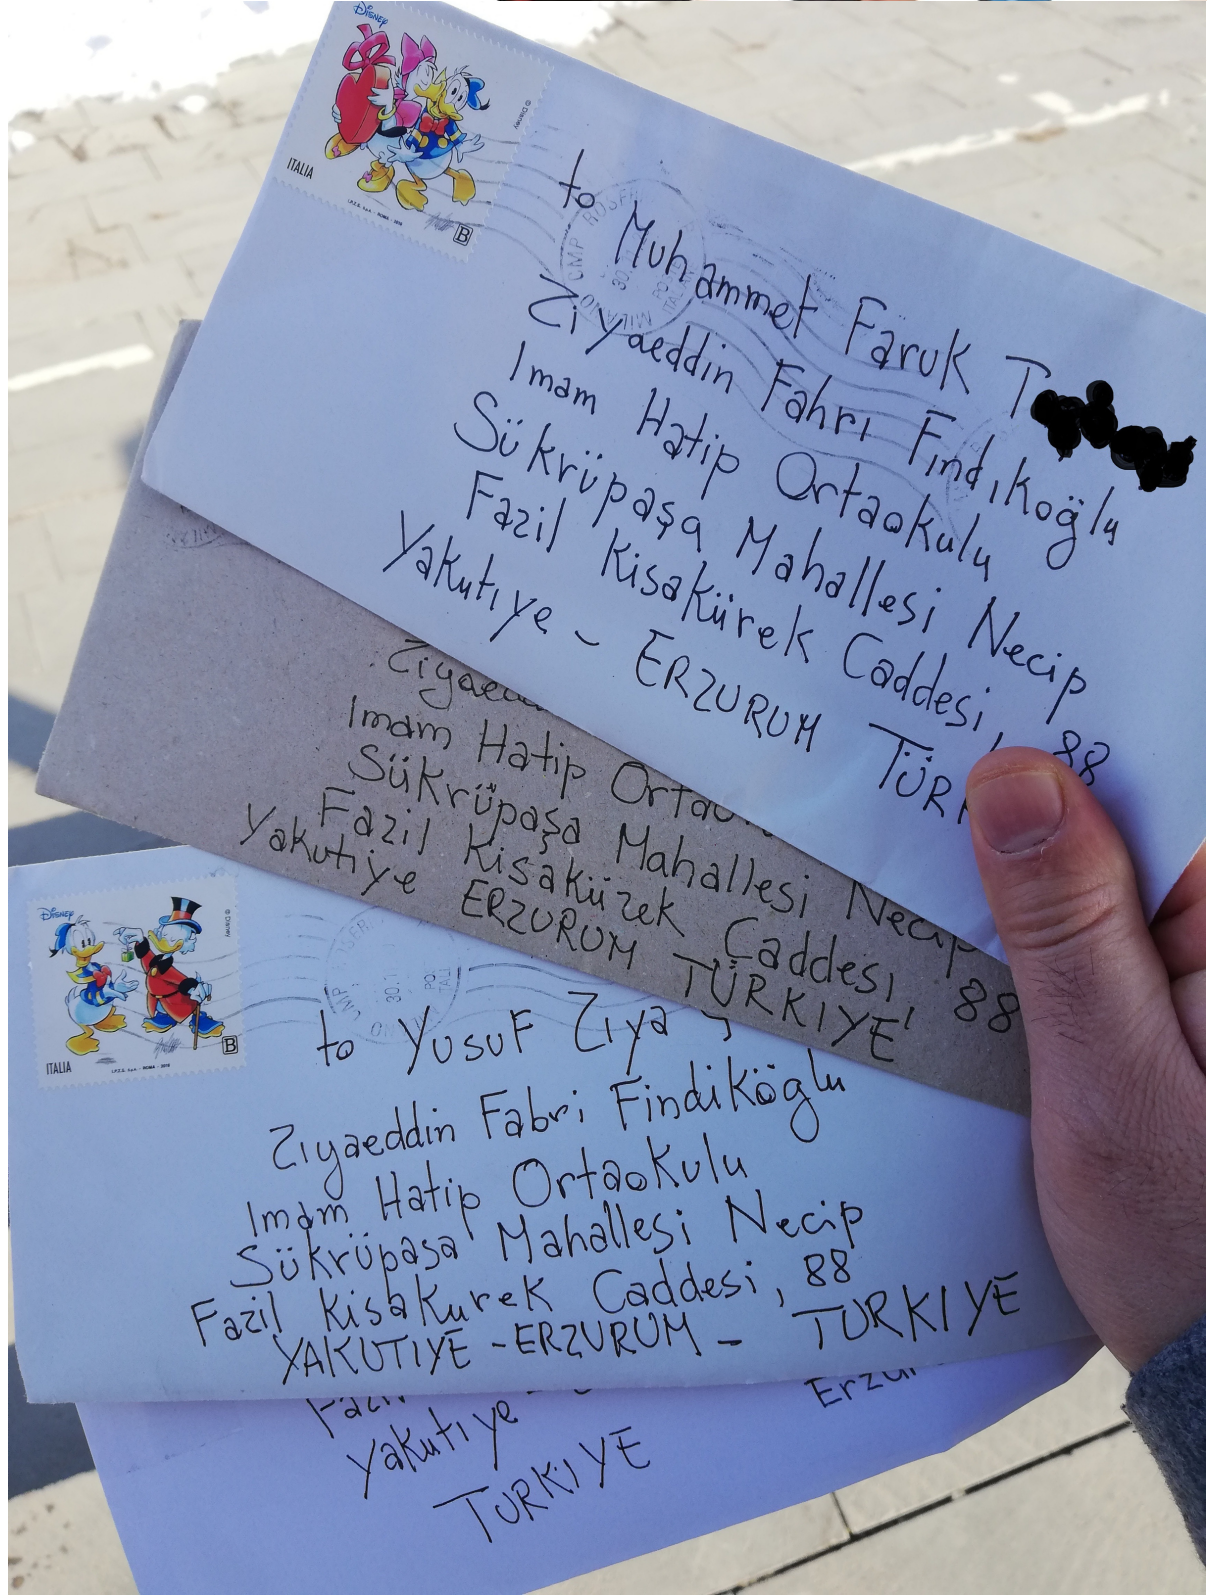 DISNEY
© Disney
ITALIA
I.P.Z.S. S.p.A. - ROMA - 2019
B
to
Muhammet Faruk T
Ziyaeddin Fahri Fındıkoğlu
Imam Hatip Ortaokulu
Sükrüpaşa Mahallesi Necip
Fazil Kisakürek Caddesi, 88
Yakutıye - ERZURUM TÜRK
Ziyaed
Imam Hatip Ortao
Sükrüpaşa Mahallesi Necip
Fazil Kisakürek Çaddesi, 88
Yakutiye ERZURUM TÜRKIYE
DISNEY
© Disney
ITALIA
I.P.Z.S. S.p.A. - ROMA - 2019
B
to Yusuf Zıya
Zıyaeddin Fabri Findiköğlu
Imam Hatip Ortaokulu
Sükrüpasa Mahallesi Necip
Fazil Kisakurek Caddesi, 88
YAKUTIYE - ERZURUM - TURKIYE
Fazi
Yakutıye - Erzur
TURKIYE